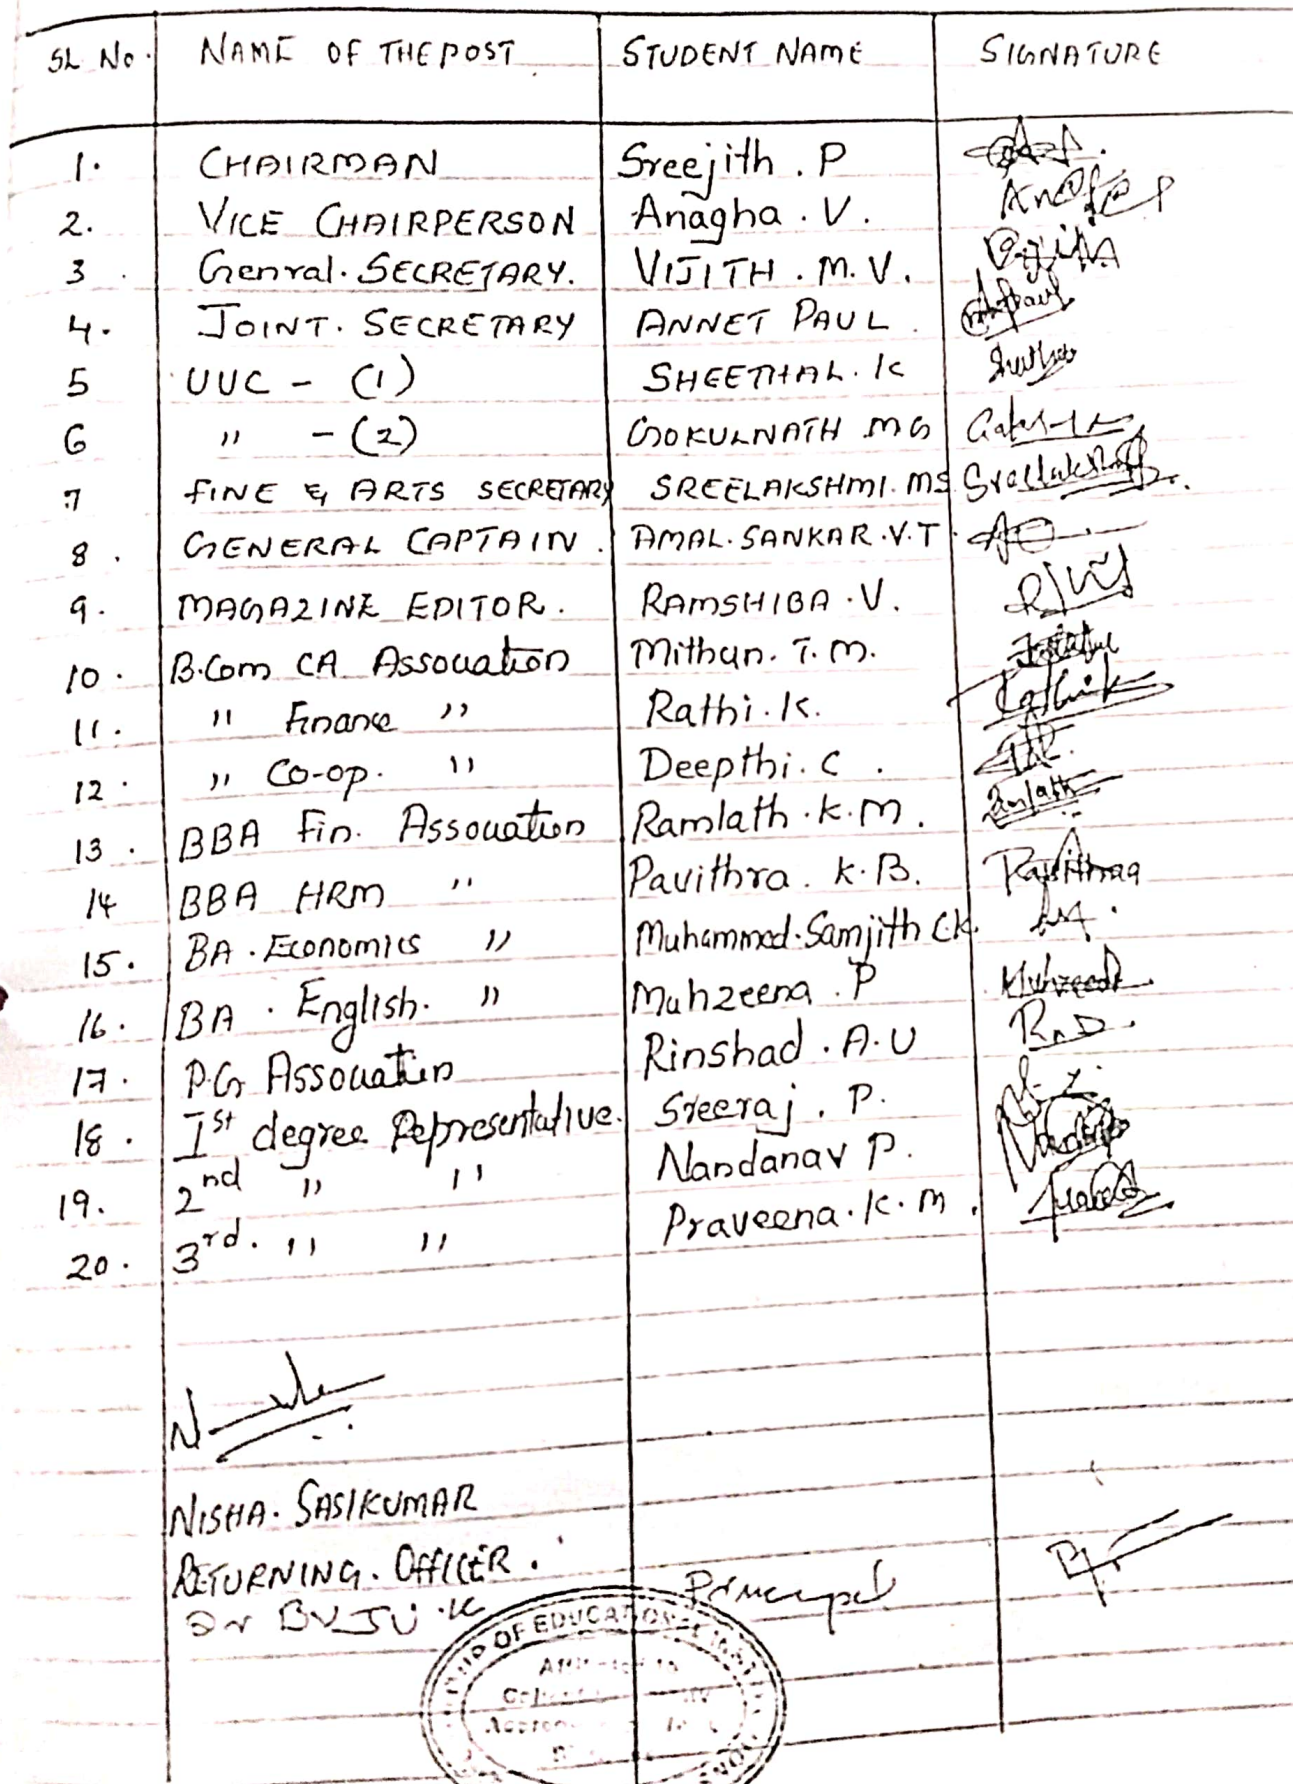 SL No. NAME OF THE POST STUDENT NAME SIGNATURE
1. CHAIRMAN Sreejith . P
2. VICE CHAIRPERSON Anagha . V.
3 . Genral. SECRETARY. VIJITH . M. V.
4. JOINT. SECRETARY ANNET PAUL .
5 UUC - (1) SHEETHAL. K
6 " - (2) GOKULNATH MG
7 FINE & ARTS SECRETARY SREELAKSHMI. MS
8 . GENERAL CAPTAIN . AMAL. SANKAR .V.T
9. MAGAZINE EDITOR. RAMSHIBA . V.
10 . B.Com CA Association Mithun. T. M.
11 . " Finance " Rathi. K.
12 . " Co-op. " Deepthi. C .
13 . BBA Fin. Association Ramlath . K. M.
14 BBA HRM " Pavithra. K. B.
15. BA . Economics " Muhammed. Samjith C.K.
16. BA . English. " Muhzeena . P
17 . P.G Association Rinshad . A. U
18 . 1st degree Representative. Sreeraj . P.
19. 2nd " " Nandanav P.
20 . 3rd. " " Praveena. K. M .
NISHA. SASIKUMAR
RETURNING. OFFICER .
Dr BVJU .K Principal
OF EDUCATION